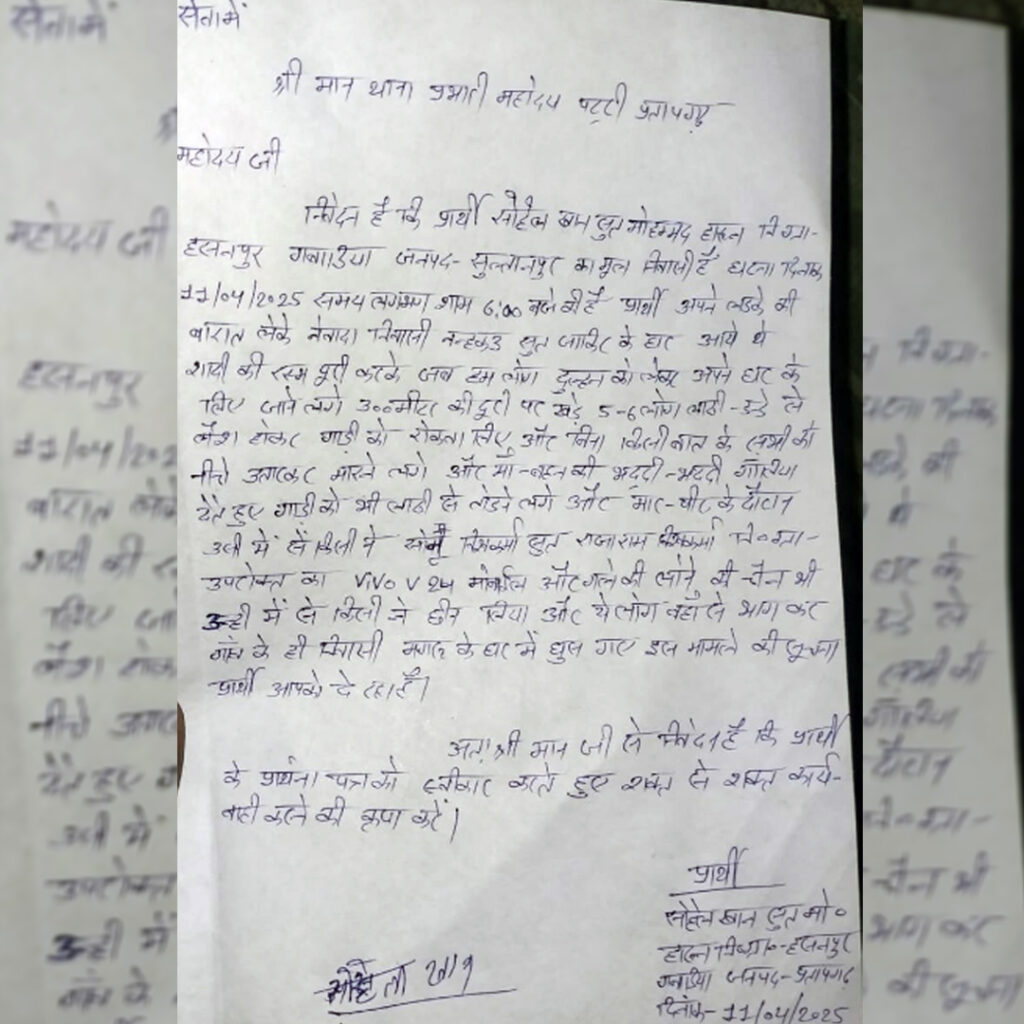 सेवामें
श्री मान थाना प्रभारी महोदय पट्टी प्रतापगढ़
महोदय जी
निवेदन है कि प्रार्थी सोहेल खान सुत मोहम्मद हारून नि०ग्रा-
हसनपुर जनपद- सुल्तानपुर का मूल निवासी है घटना दिनांक
11/04/2025 समय लगभग शाम 6:00 बजे की है प्रार्थी अपने लडके की
बारात लेके नेवादा निवासी नन्हकउ सुत के घर आये थे
शादी की रस्म पूरी करके जब हम लोग दुल्हन को लेकर अपने घर के
लिए जाने लगे 300मीटर की दूरी पर खड़े 5-6 लोग लाठी-डंडे ले
लैश होकर गाडी को रोकवा लिए और बिना किसी बात के सभी को
नीचे उतारकर मारने लगे और माँ-बहन की भद्दी-भद्दी गालिया
देते हुए गाड़ी को भी लाठी से तोडने लगे और मार-पीट के दौरान
उसी में से किसी ने विश्वकर्मा सुत राजाराम विश्वकर्मा नि०ग्रा-
उपरोक्त का VIVO V24 मोबाईल और गले की सोने की चैन भी
उन्ही में से किसी ने छीन लिया और ये लोग वहा से भाग कर
गांव के ही निवासी के घर में घुस गए इस मामले की सूचना
प्रार्थी आपको दे रहा है।
अतः श्री मान जी से निवेदन है कि प्रार्थी
के प्रार्थना पत्र को स्वीकार करते हुए शक्त से शक्त कार्य-
वाही करने की कृपा करें।
प्रार्थी
सोहेल खान सुत मो०
हारून नि०ग्रा०-हसनपुर
जनपद-प्रतापगढ़
दिनांक- 11/04/2025
सोहेल खान